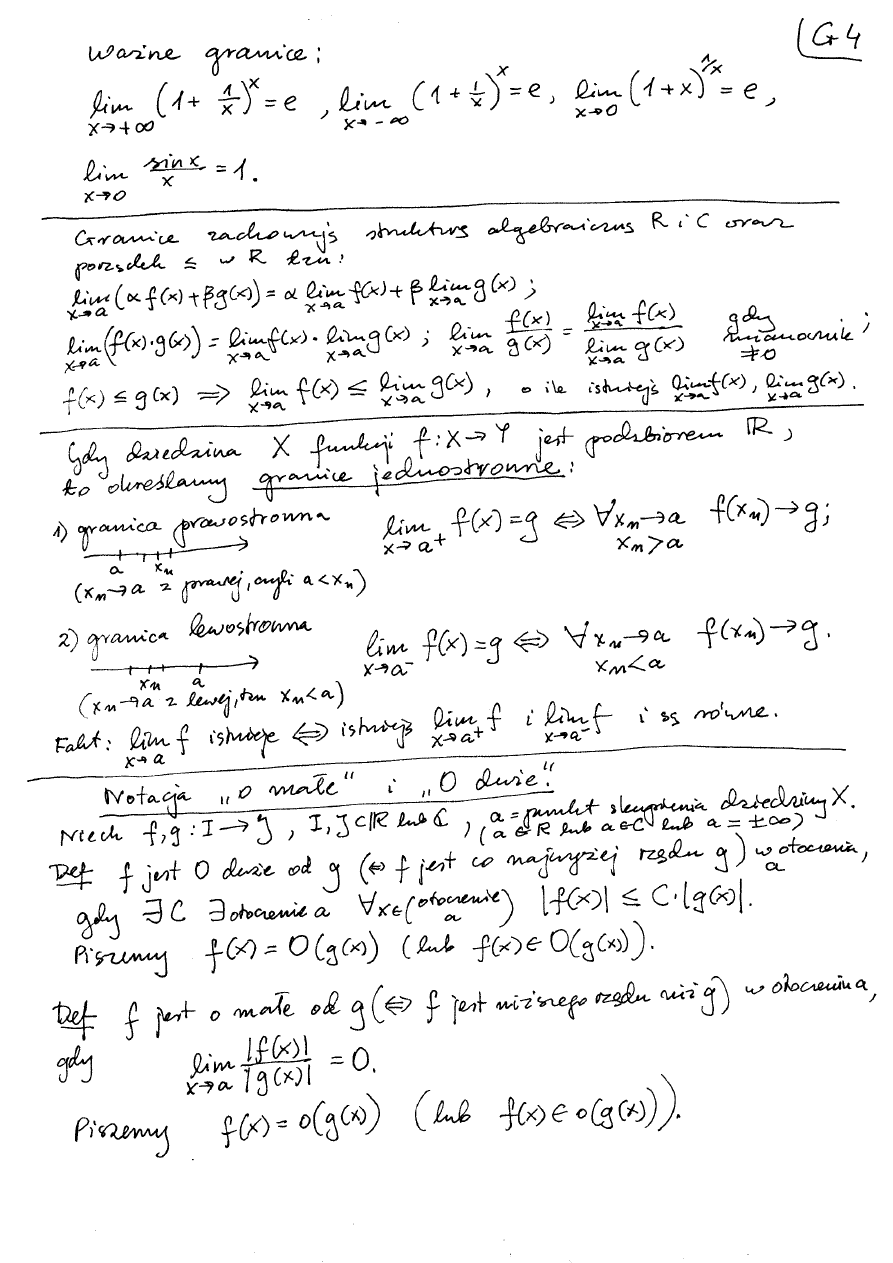 G4
Ważne granice:
lim x→+∞ (1 + 1/x)^x = e , lim x→-∞ (1 + 1/x)^x = e, lim x→0 (1+x)^{1/x} = e ,
lim x→0 sin x / x = 1.
Granice zachowują strukturę algebraiczną R i C oraz
porządek ≤ w R tzn:
lim x→a (αf(x) + βg(x)) = α lim x→a f(x) + β lim x→a g(x) ;
lim x→a (f(x)·g(x)) = lim x→a f(x) · lim x→a g(x) ; lim x→a f(x)/g(x) = lim x→a f(x) / lim x→a g(x) gdy mianownik ≠0 ;
f(x) ≤ g(x) ⟹ lim x→a f(x) ≤ lim x→a g(x) , o ile istnieją lim x→a f(x), lim x→a g(x).
Gdy dziedzina X funkcji f: X → Y jest podzbiorem ℝ,
to określamy granice jednostronne:
1) granica prawostronna lim x→a⁺ f(x) = g ⇔ ∀ xₙ→a xₙ>a f(xₙ) → g;
a xₙ
(xₙ→a z prawej, czyli a < xₙ)
2) granica lewostronna lim x→a⁻ f(x) = g ⇔ ∀ xₙ→a xₙ<a f(xₙ) → g.
xₙ a
(xₙ→a z lewej, tzn xₙ<a)
Fakt: lim x→a f istnieje ⇔ istnieją lim x→a⁺ f i lim x→a⁻ f i są równe.
Notacja „o małe" i „O duże".
Niech f,g : I → J , I, J ⊂ ℝ lub ℂ , a = punkt skupienia dziedziny X.
(a ∈ R lub a ∈ C lub a = ±∞)
Def f jest O duże od g (⇔ f jest co najwyżej rzędu g) w otoczeniu a,
gdy ∃C ∃otoczenie a ∀x∈(otoczenie a) |f(x)| ≤ C·|g(x)|.
Piszemy f(x) = O(g(x)) (lub f(x) ∈ O(g(x))).
Def f jest o małe od g (⇔ f jest niższego rzędu niż g) w otoczeniu a,
gdy lim x→a |f(x)|/|g(x)| = 0.
Piszemy f(x) = o(g(x)) (lub f(x) ∈ o(g(x))).